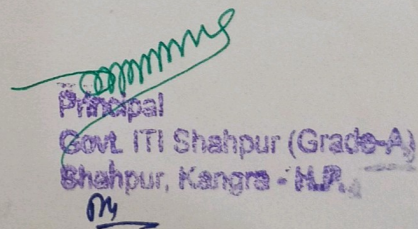 Principal
Govt. ITI Shahpur (Grade-A)
Shahpur, Kangra - H.P.